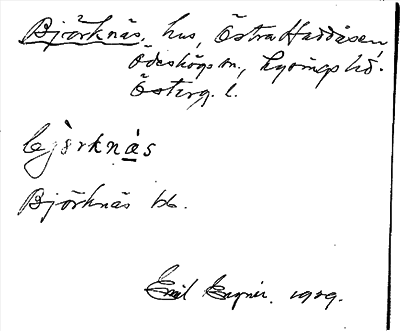 Björknäs, hus, Östra Haddåsen,
Ödeshögs sn., Lysings hd.
Österg. l.
bjö̀rknäs
Björknäs bb.
Emil 1929.